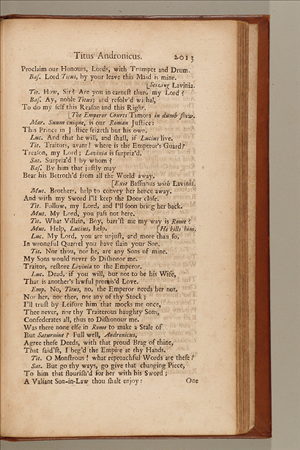 Titus Andronicus. 2013
Proclaim our Honours, Lords, with Trumpet and Drum.
Bas. Lord Titus, by your leave this Maid is mine.
[Seizing Lavinia.
Tit. How, Sir? Are you in earnest then, my Lord?
Bas. Ay, noble Titus; and resolv'd withal,
To do my self this Reason and this Right.
[The Emperor Courts Tamora in dumb show.
Mar. Suum cuique, is our Roman Justice:
This Prince in Justice seizeth but his own.
Luc. And that he will, and shall, if Lucius live.
Tit. Traitors, avant! where is the Emperor's Guard?
Treason, my Lord; Lavinia is surpriz'd.
Sat. Surpriz'd! by whom?
Bas. By him that justly may
Bear his Betroth'd from all the World away.
[Exit Bassianus with Lavinia.
Mut. Brothers, help to convey her hence away,
And with my Sword I'll keep the Door close.
Tit. Follow, my Lord, and I'll soon bring her back.
Mut. My Lord, you pass not here.
Tit. What Villain, Boy, barr'st me my way in Rome?
Mut. Help, Lucius, help. [He kills him.
Luc. My Lord, you are unjust, and more than so,
In wrongful Quarrel you have slain your Son.
Tit. Nor thou, nor he, are any Sons of mine.
My Sons would never so Dishonour me.
Traitor, restore Lavinia to the Emperor.
Luc. Dead, if you will, but not to be his Wife,
That is another's lawful promis'd Love.
Emp. No, Titus, no, the Emperor needs her not,
Nor her, nor thee, nor any of thy Stock;
I'll trust by Leisure him that mocks me once,
Thee never, nor thy Traiterous haughty Sons,
Confederates all, thus to Dishonour me.
Was there none else in Rome to make a Stale of
But Saturninus? Full well, Andronicus,
Agree these Deeds, with that proud Brag of thine,
That said'st, I beg'd the Empire at thy Hands.
Tit. O Monstrous! what reproachful Words are these?
Sat. But go thy ways, go give that changing Piece,
To him that flourish'd for her with his Sword;
A Valiant Son-in-Law thou shalt enjoy:
One